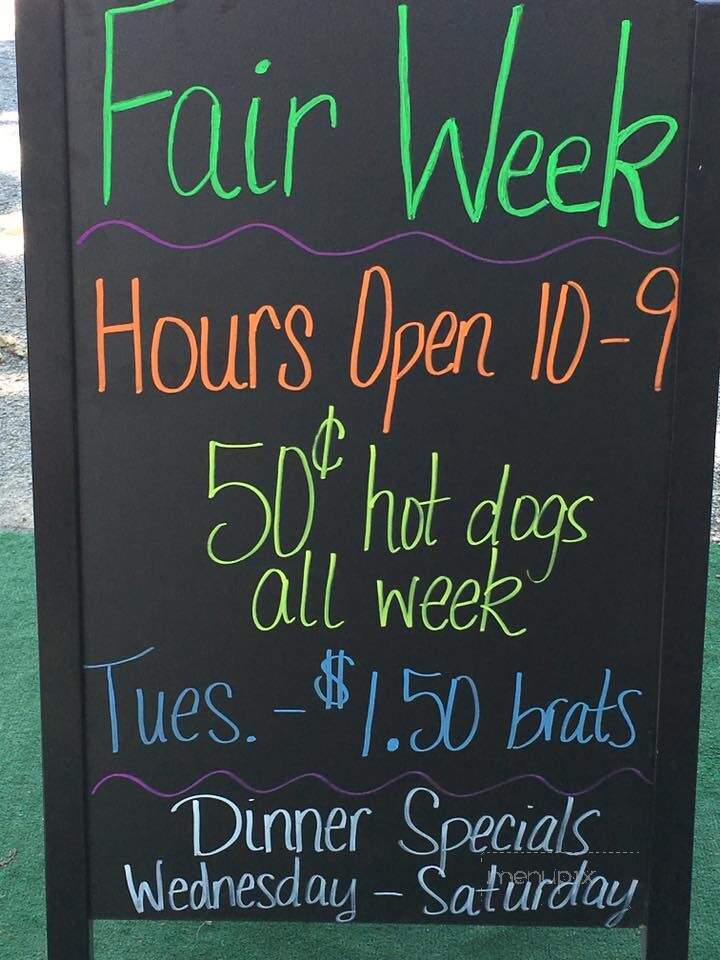 Fair Week
Hours Open 10-9
50¢ hot dogs
all week
Tues. - $1.50 brats
Dinner Specials
Wednesday - Saturday
menupix